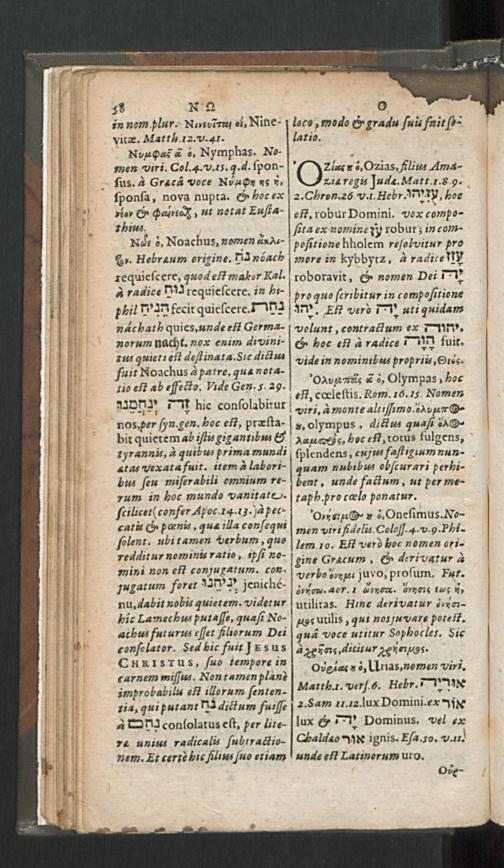 58 Ν Ω
in nom. plur. Νινευῖται οἱ, Nine-
vitæ. Matth. 12. v. 41.
Νυμφᾶς ᾶ ὁ, Nymphas. No-
men viri. Col. 4. v. 15. q.d. spon-
sus. à Græcâ voce Νύμφη ης ἡ,
sponsa, nova nupta. & hoc ex
νέον & φαίνεσθ, ut notat Eusta-
thius.
Νῶε ὁ, Noachus, nomen ἄκλι-
τον. Hebræum origine. נֹחַ nóach
requiescere, quod est makor Kal.
à radice נוּחַ requiescere. in hi-
phil הֵנִיחַ fecit quiescere. נַחַת
náchath quies, unde est Germa-
norum nacht. nox enim divini-
tus quieti est destinata. Sic dictus
fuit Noachus à patre, quæ nota-
tio est ab effecto. Vide Gen. 5. 29.
זֶה יְנַחֲמֵנוּ hic consolabitur
nos, per syn. gen. hoc est, præsta-
bit quietem ab istis gigantibus &
tyrannis, à quibus prima mundi
ætas vexata fuit. item à labori-
bus seu miserabili omnium re-
rum in hoc mundo vanitate.
scilicet (confer Apoc. 14. 13.) à pec-
catis & pœnis, quæ illa consequi
solent. ubi tamen verbum, quo
redditur nominis ratio, ipsi no-
mini non est conjugatum. con-
jugatum foret יְנִיחֵנוּ jeniché-
nu, dabit nobis quietem. videtur
hic Lamechus putasse, quasi No-
achus futurus esset filiorum Dei
consolator. Sed hic fuit JESUS
CHRISTUS, suo tempore in
carnem missus. Non tamen planè
improbabilis est illorum senten-
tia, qui putant נֹחַ dictum fuisse
à נָחַם consolatus est, per lite-
ræ unius radicalis subtractio-
nem. Et certè hic filius suo etiam
Ο
loco, modo & gradu suis fuit so-
latio.
Οζίας ου ὁ, Ozias, filius Ama-
ziæ regis Judæ. Matt. 1. 8. 9.
2. Chron. 26 v. 1. Hebr. עֻזִּיָּהוּ, hoc
est, robur Domini. vox compo-
sita ex nomine עֹז robur; in com-
positione hholem resolvitur pro
more in kybbytz, à radice עָזַז
roboravit, & nomen Dei יָהּ
pro quo scribitur in compositione
יָהוּ. Est verò יָהּ uti quidam
volunt, contractum ex יהוה,
& hoc est à radice הָוָה fuit.
vide in nominibus propriis, Θεός.
Ὀλυμπᾶς ᾶ ὁ, Olympas, hoc
est, cœlestis. Rom. 16. 15. Nomen
viri, à monte altissimo. ὄλυμπος
ου, olympus, dictus quasi ὁλο-
λαμπρὸς, hoc est, totus fulgens,
splendens, cujus fastigium nun-
quam nubibus obscurari perhi-
bent, unde factum, ut per me-
taph. pro cœlo ponatur.
Ὀνήσιμος ου ὁ, Onesimus. No-
men viri fidelis. Coloss. 4. v. 9. Phi-
lem. 10. Est verò hoc nomen ori-
gine Græcum, & derivatur à
verbo ὄνημι juvo, prosum. Fut.
ὀνήσω. aor. 1 ὤνησα. ὄνησις εως ἡ,
utilitas. Hinc derivatur ὀνήσι-
μος utilis, qui nos juvare potest.
quâ voce utitur Sophocles. Sic
à χρῆσις, dicitur χρήσιμος.
Οὐρίας ου ὁ, Urias, nomen viri.
Matth. 1. vers. 6. Hebr. אוּרִיָּה.
2. Sam 11. 12. lux Domini. ex אוֹר
lux & יָהּ Dominus. vel ex
Chaldæo אוּר ignis. Esa. 50. v. 11.
unde est Latinorum uro.
Οὐρ-